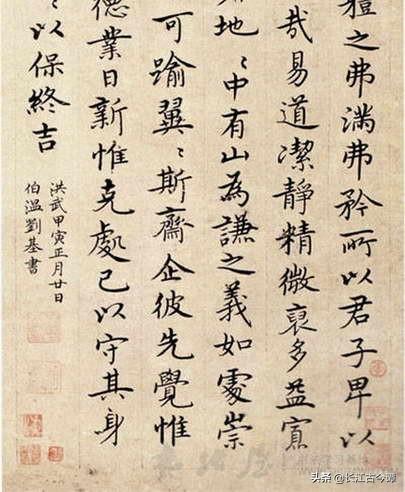 之弗滿弗矜所以君子卑以
哉易道潔靜精微裒多益寡
地〻中有山為謙之義如處崇
可踰翼〻斯齋企彼先覺惟
德業日新惟克處己以守其身
〻以保終吉
洪武甲寅正月廿日
伯溫劉基書
头条 @长江古今源